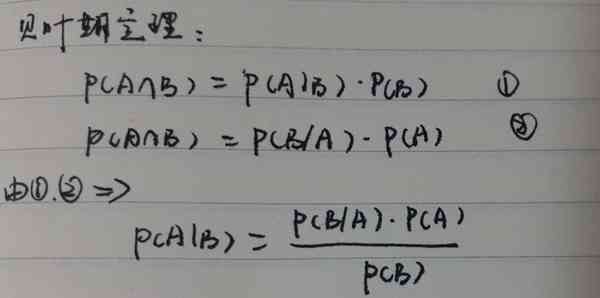 贝叶斯定理：
P(A∩B) = P(A|B)·P(B) ①
P(A∩B) = P(B|A)·P(A) ②
由①.② =>
P(A|B) = P(B|A)·P(A)
P(B)